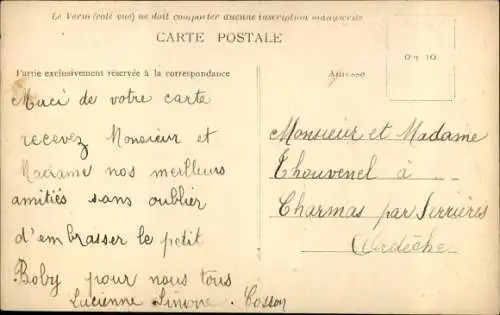 Le Verso (côté vue) ne doit comporter aucune inscription manuscrite
CARTE POSTALE
Partie exclusivement réservée à la correspondance
Adresse
Merci de votre carte
recevez Monsieur et
Madame nos meilleurs
amitiés sans oublier
d'embrasser le petit
Boby pour nous tous
Lucienne Simone Cosson
Monsieur et Madame
Thouvenel à
Charmas par Serrières
Ardèche